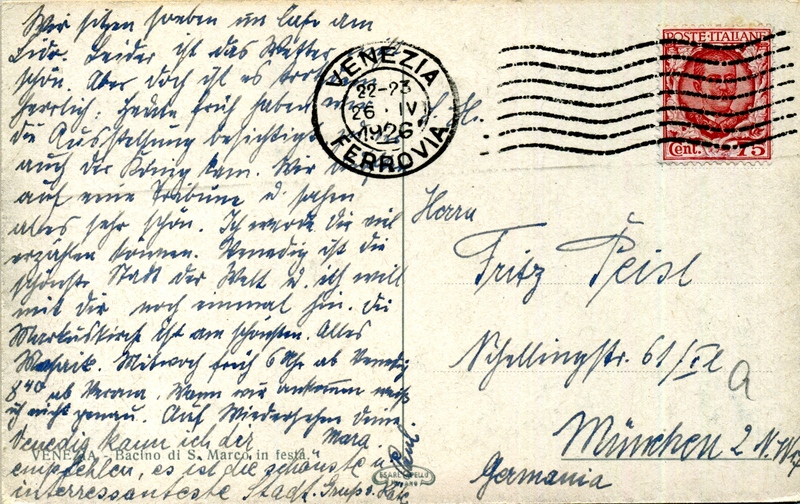 Wir sitzen soeben im Cafe am
Lido. Leider ist das Wetter nicht
schön. Aber doch ist es
herrlich. Heute früh haben wir
die Ausstellung besichtigt
auch der König kam. Wir
auf eine Tribüne u. sahen
alles sehr schön. Ich werde Dir viel
erzählen können. Venedig ist die
schönste Stadt der Welt u. ich will
mit dir noch einmal hin. Die
Markuskirche ist am schönsten. Alles
Mosaik. Mittwoch früh 6 Uhr ab Venedig
8 40 ab Verona. Wann wir ankommen weiß
ich nicht genau. Auf Wiedersehen Deine
Mara
Venedig kann ich dir
empfehlen, es ist die schönste u.
interressanteste Stadt. Gruß
VENEZIA - Bacino di S. Marco in festa
VENEZIA
22-23
26 . IV
1926
FERROVIA
POSTE·ITALIANE
Cent. 75
Herrn
Fritz Peisl
Schellingstr. 61/
a
München 2 N.W.
Germania